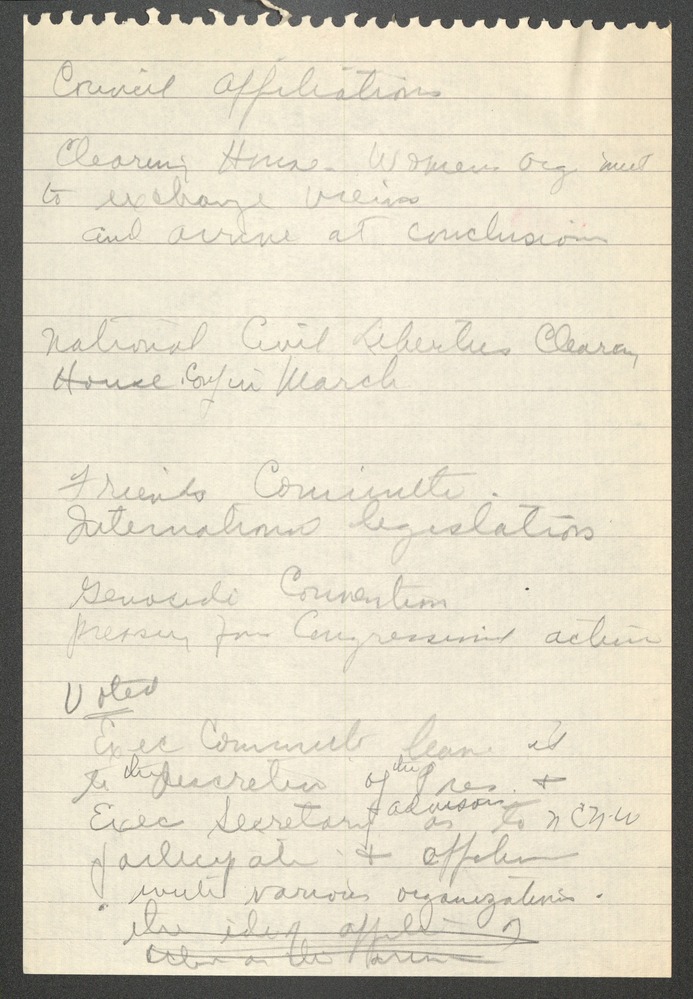 Council Affiliations
Clearing House - Womens Org meet
to exchange views
and arrive at conclusions
National Civil Liberties Clearing
House Conf in March
Friends Committe.
International legislation
Genocide Convention
pressing for Congressional action
Voted
Exec Committe leave it
to the discretion of the Pres. +
Exec Secretary advisors as to NCNW
participate + affiliation
with various organizations.
the idea of
action on the